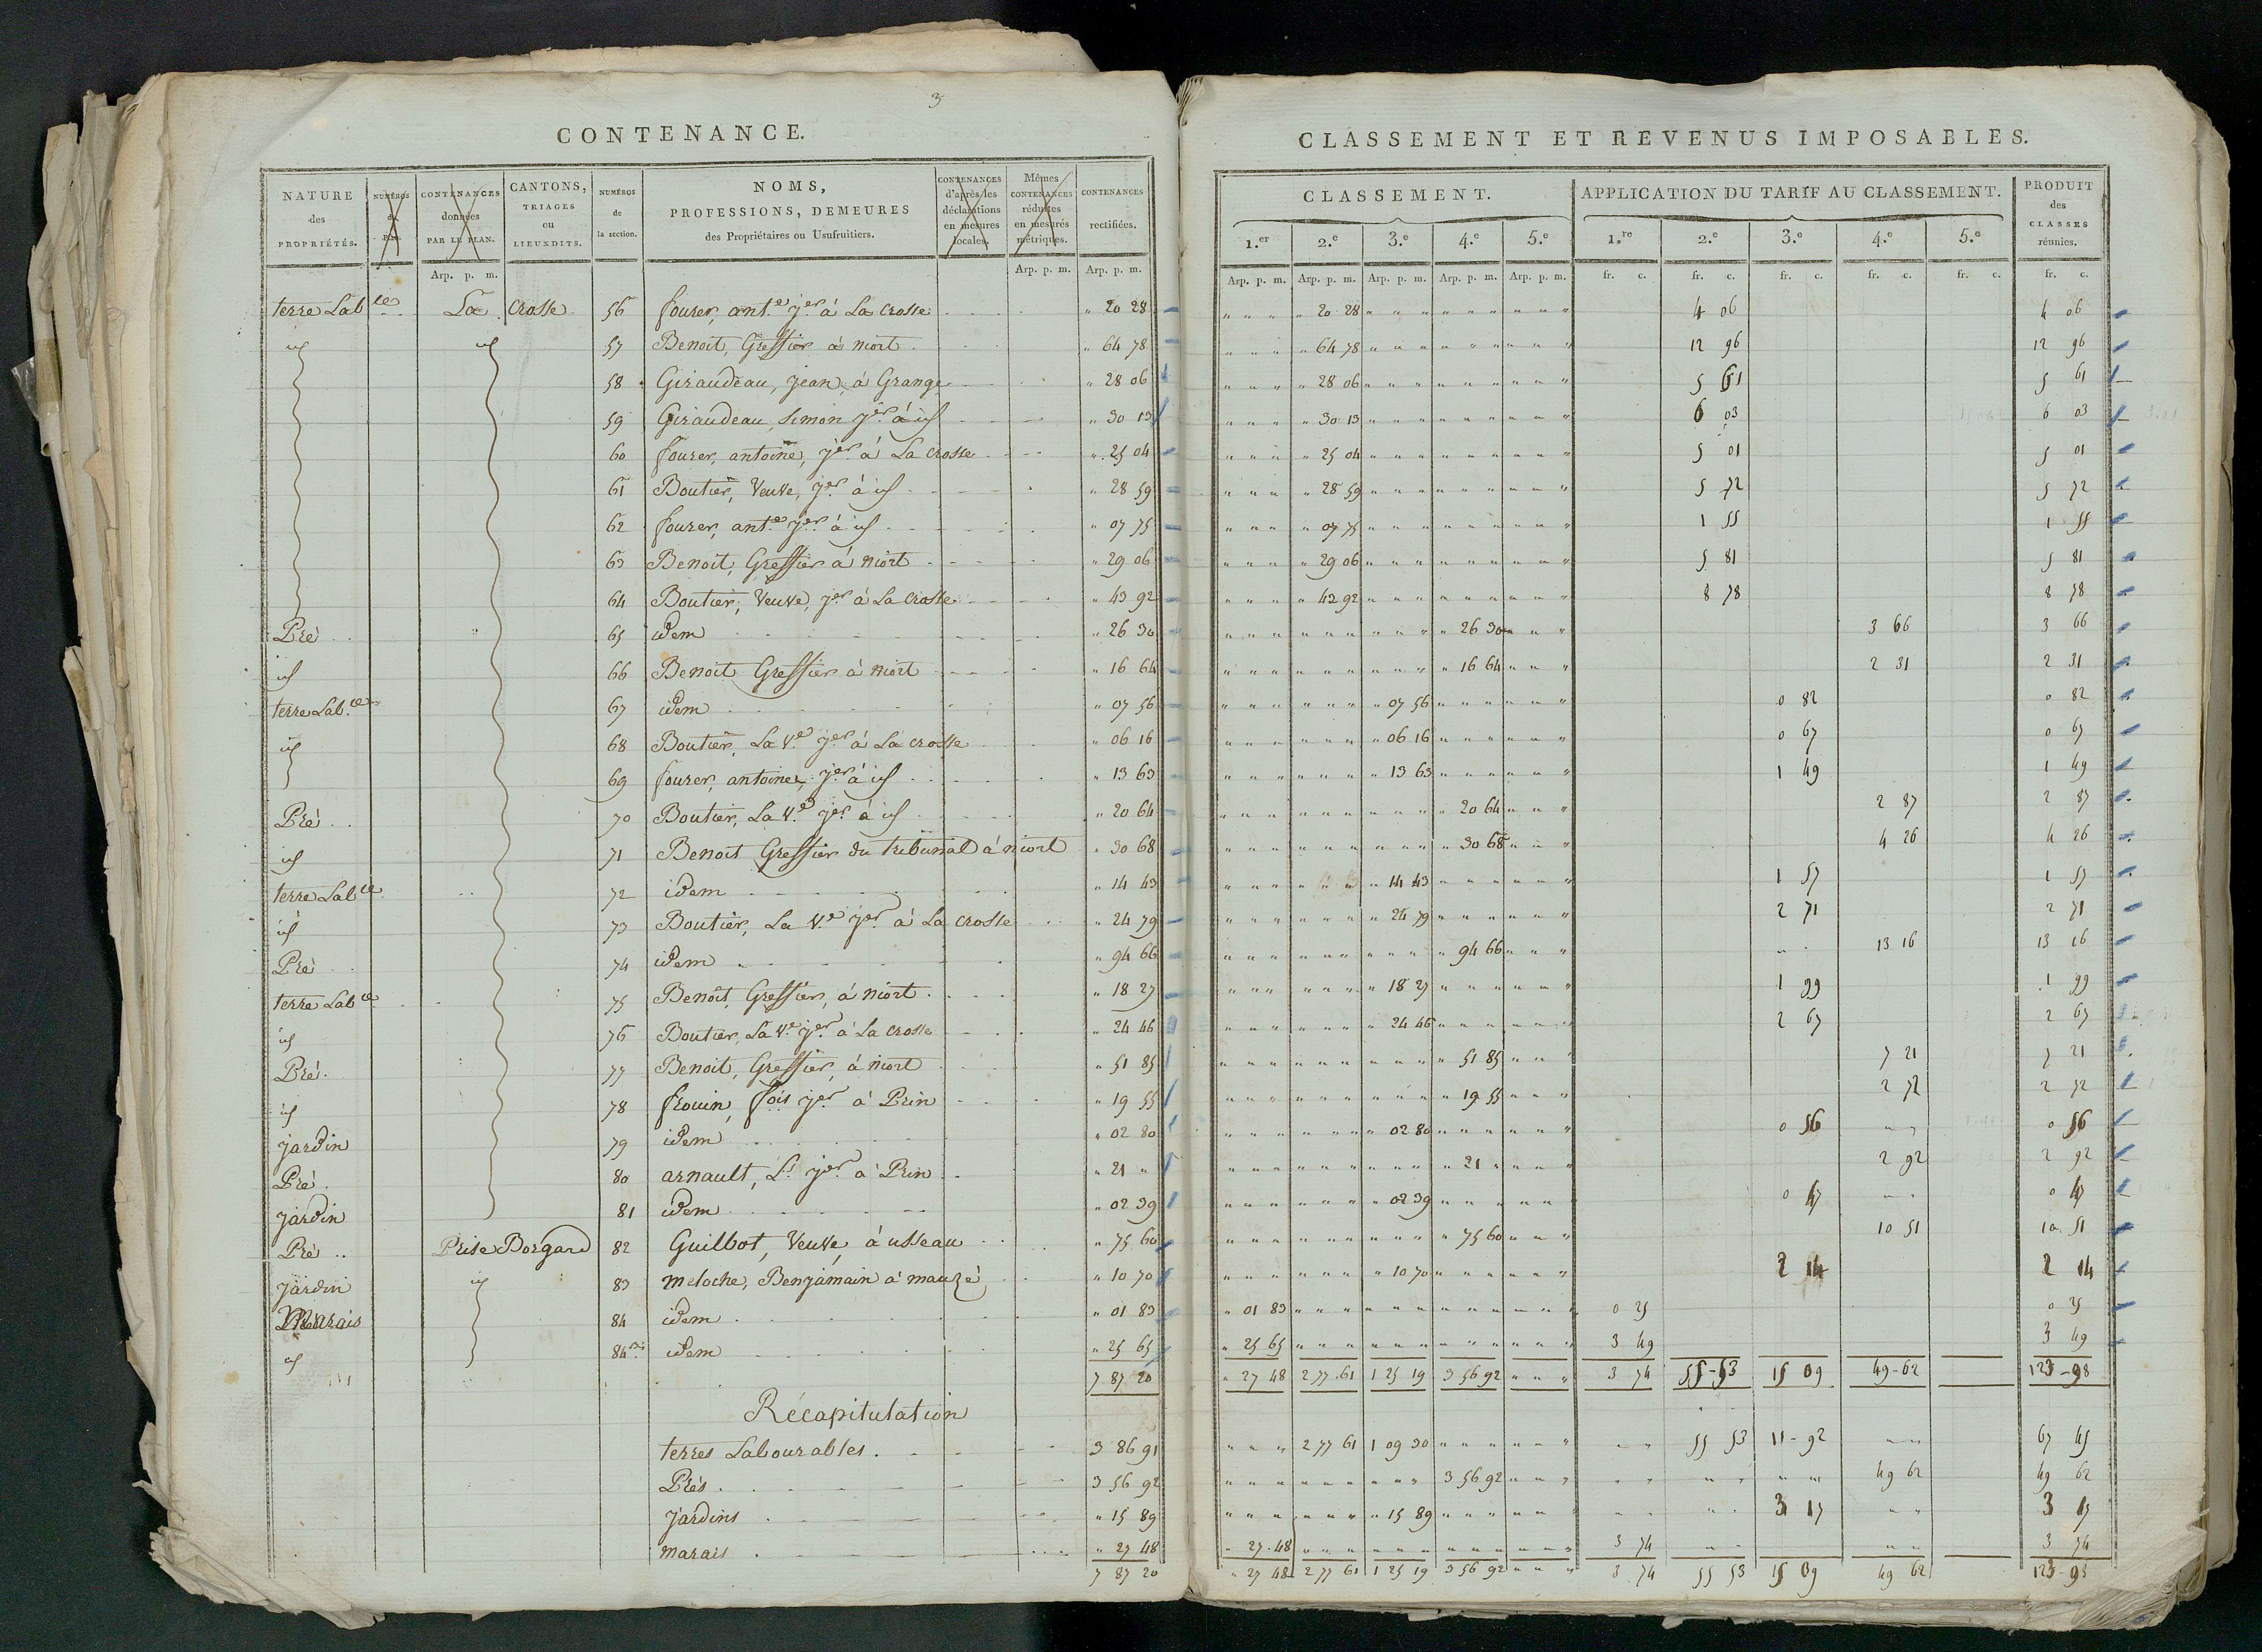 3
CONTENANCE.
NATURE des PROPRIÉTÉS. | NUMÉROS du | CONTENANCES données PAR LE PLAN. | CANTONS, TRIAGES ou LIEUXDITS. | NUMÉROS de la section. | NOMS, PROFESSIONS, DEMEURES des Propriétaires ou Usufruitiers. | CONTENANCES d'après les déclarations en mesures locales. | Mêmes CONTENANCES réduites en mesures métriques. | CONTENANCES rectifiées.
Arp. p. m. | Arp. p. m. | Arp. p. m.
terre Lab.ce La Crosse 56 fourer, ant.e j.er à La Crosse " 20 28
id id 57 Benoit, Greffier à niort " 64 78
58 Giraudeau, jean, à Grange " 28 06
59 Giraudeau, Simon j.er à id " 30 13
60 fourer, antoine, j.er à La Crosse " 25 04
61 Boutier, Veuve, j.er à id " 28 59
62 fourer, ant.e j.er à id " 07 75
63 Benoit, Greffier à niort " 29 06
64 Boutier, Veuve, j.er à La Crosse " 43 92
Pré 65 idem " 26 30
id 66 Benoit Greffier à niort " 16 64
terre Lab.ce 67 idem " 07 56
id 68 Boutier, La V.e j.er à La Crosse " 06 16
69 fourer, antoine, j.er à id " 13 63
Pré 70 Boutier, La V.e j.er à id " 20 64
id 71 Benoit Greffier du tribunal à niort " 30 68
terre Lab.ce 72 idem " 14 43
id 73 Boutier, La V.e j.er à La Crosse " 24 79
Pré 74 idem " 94 66
terre Lab.ce 75 Benoit, Greffier, à niort " 18 27
id 76 Boutier, La V.e j.er à La Crosse " 24 46
Pré 77 Benoit, Greffier, à niort " 51 85
id 78 frouin, fois j.er à Prin " 19 55
jardin 79 idem " 02 80
Pré 80 arnault, L.s j.er à Prin " 21 "
jardin 81 idem " 02 39
Pré Prise Borgard 82 Guilbot, Veuve, à usseau " 75 60
jardin id 83 meloche, Benjamain à mauzé " 10 70
Marais 84 idem " 01 83
id 84 bis idem " 25 65
7 87 20
Récapitulation
terres Labourables 3 86 91
Prés 3 56 92
Jardins " 15 89
marais " 27 48
7 87 20
CLASSEMENT ET REVENUS IMPOSABLES.
CLASSEMENT. | APPLICATION DU TARIF AU CLASSEMENT. | PRODUIT des CLASSES réunies.
1.er | 2.e | 3.e | 4.e | 5.e | 1.re | 2.e | 3.e | 4.e | 5.e
Arp. p. m. | Arp. p. m. | Arp. p. m. | Arp. p. m. | Arp. p. m. | fr. c. | fr. c. | fr. c. | fr. c. | fr. c. | fr. c.
" 20 28 | 4 06 | 4 06
" 64 78 | 12 96 | 12 96
" 28 06 | 5 61 | 5 61
" 30 13 | 6 03 | 6 03
" 25 04 | 5 01 | 5 01
" 28 59 | 5 72 | 5 72
" 07 75 | 1 55 | 1 55
" 29 06 | 5 81 | 5 81
" 43 92 | 8 78 | 8 78
" 26 30 | 3 66 | 3 66
" 16 64 | 2 31 | 2 31
" 07 56 | 0 82 | 0 82
" 06 16 | 0 67 | 0 67
" 13 63 | 1 49 | 1 49
" 20 64 | 2 87 | 2 87
" 30 68 | 4 26 | 4 26
" 14 43 | 1 57 | 1 57
" 24 79 | 2 71 | 2 71
" 94 66 | 13 16 | 13 16
" 18 27 | 1 99 | 1 99
" 24 46 | 2 67 | 2 67
" 51 85 | 7 21 | 7 21
" 19 55 | 2 72 | 2 72
" 02 80 | 0 56 | 0 56
" 21 " | 2 92 | 2 92
" 02 39 | 0 47 | 0 47
" 75 60 | 10 51 | 10 51
" 10 70 | 2 14 | 2 14
" 01 83 | 0 25 | 0 25
" 25 65 | 3 49 | 3 49
" 27 48 | 2 77 61 | 1 25 19 | 3 56 92 | " " " | 3 74 | 55-53 | 15 09 | 49-62 | 123-98
2 77 61 | 1 09 30 | 55 53 | 11-92 | 67 45
3 56 92 | 49 62 | 49 62
" 15 89 | 3 17 | 3 17
" 27-48 | 3 74 | 3 74
" 27 48 | 2 77 61 | 1 25 19 | 3 56 92 | " " " | 3 74 | 55 53 | 15 09 | 49 62 | 123-98